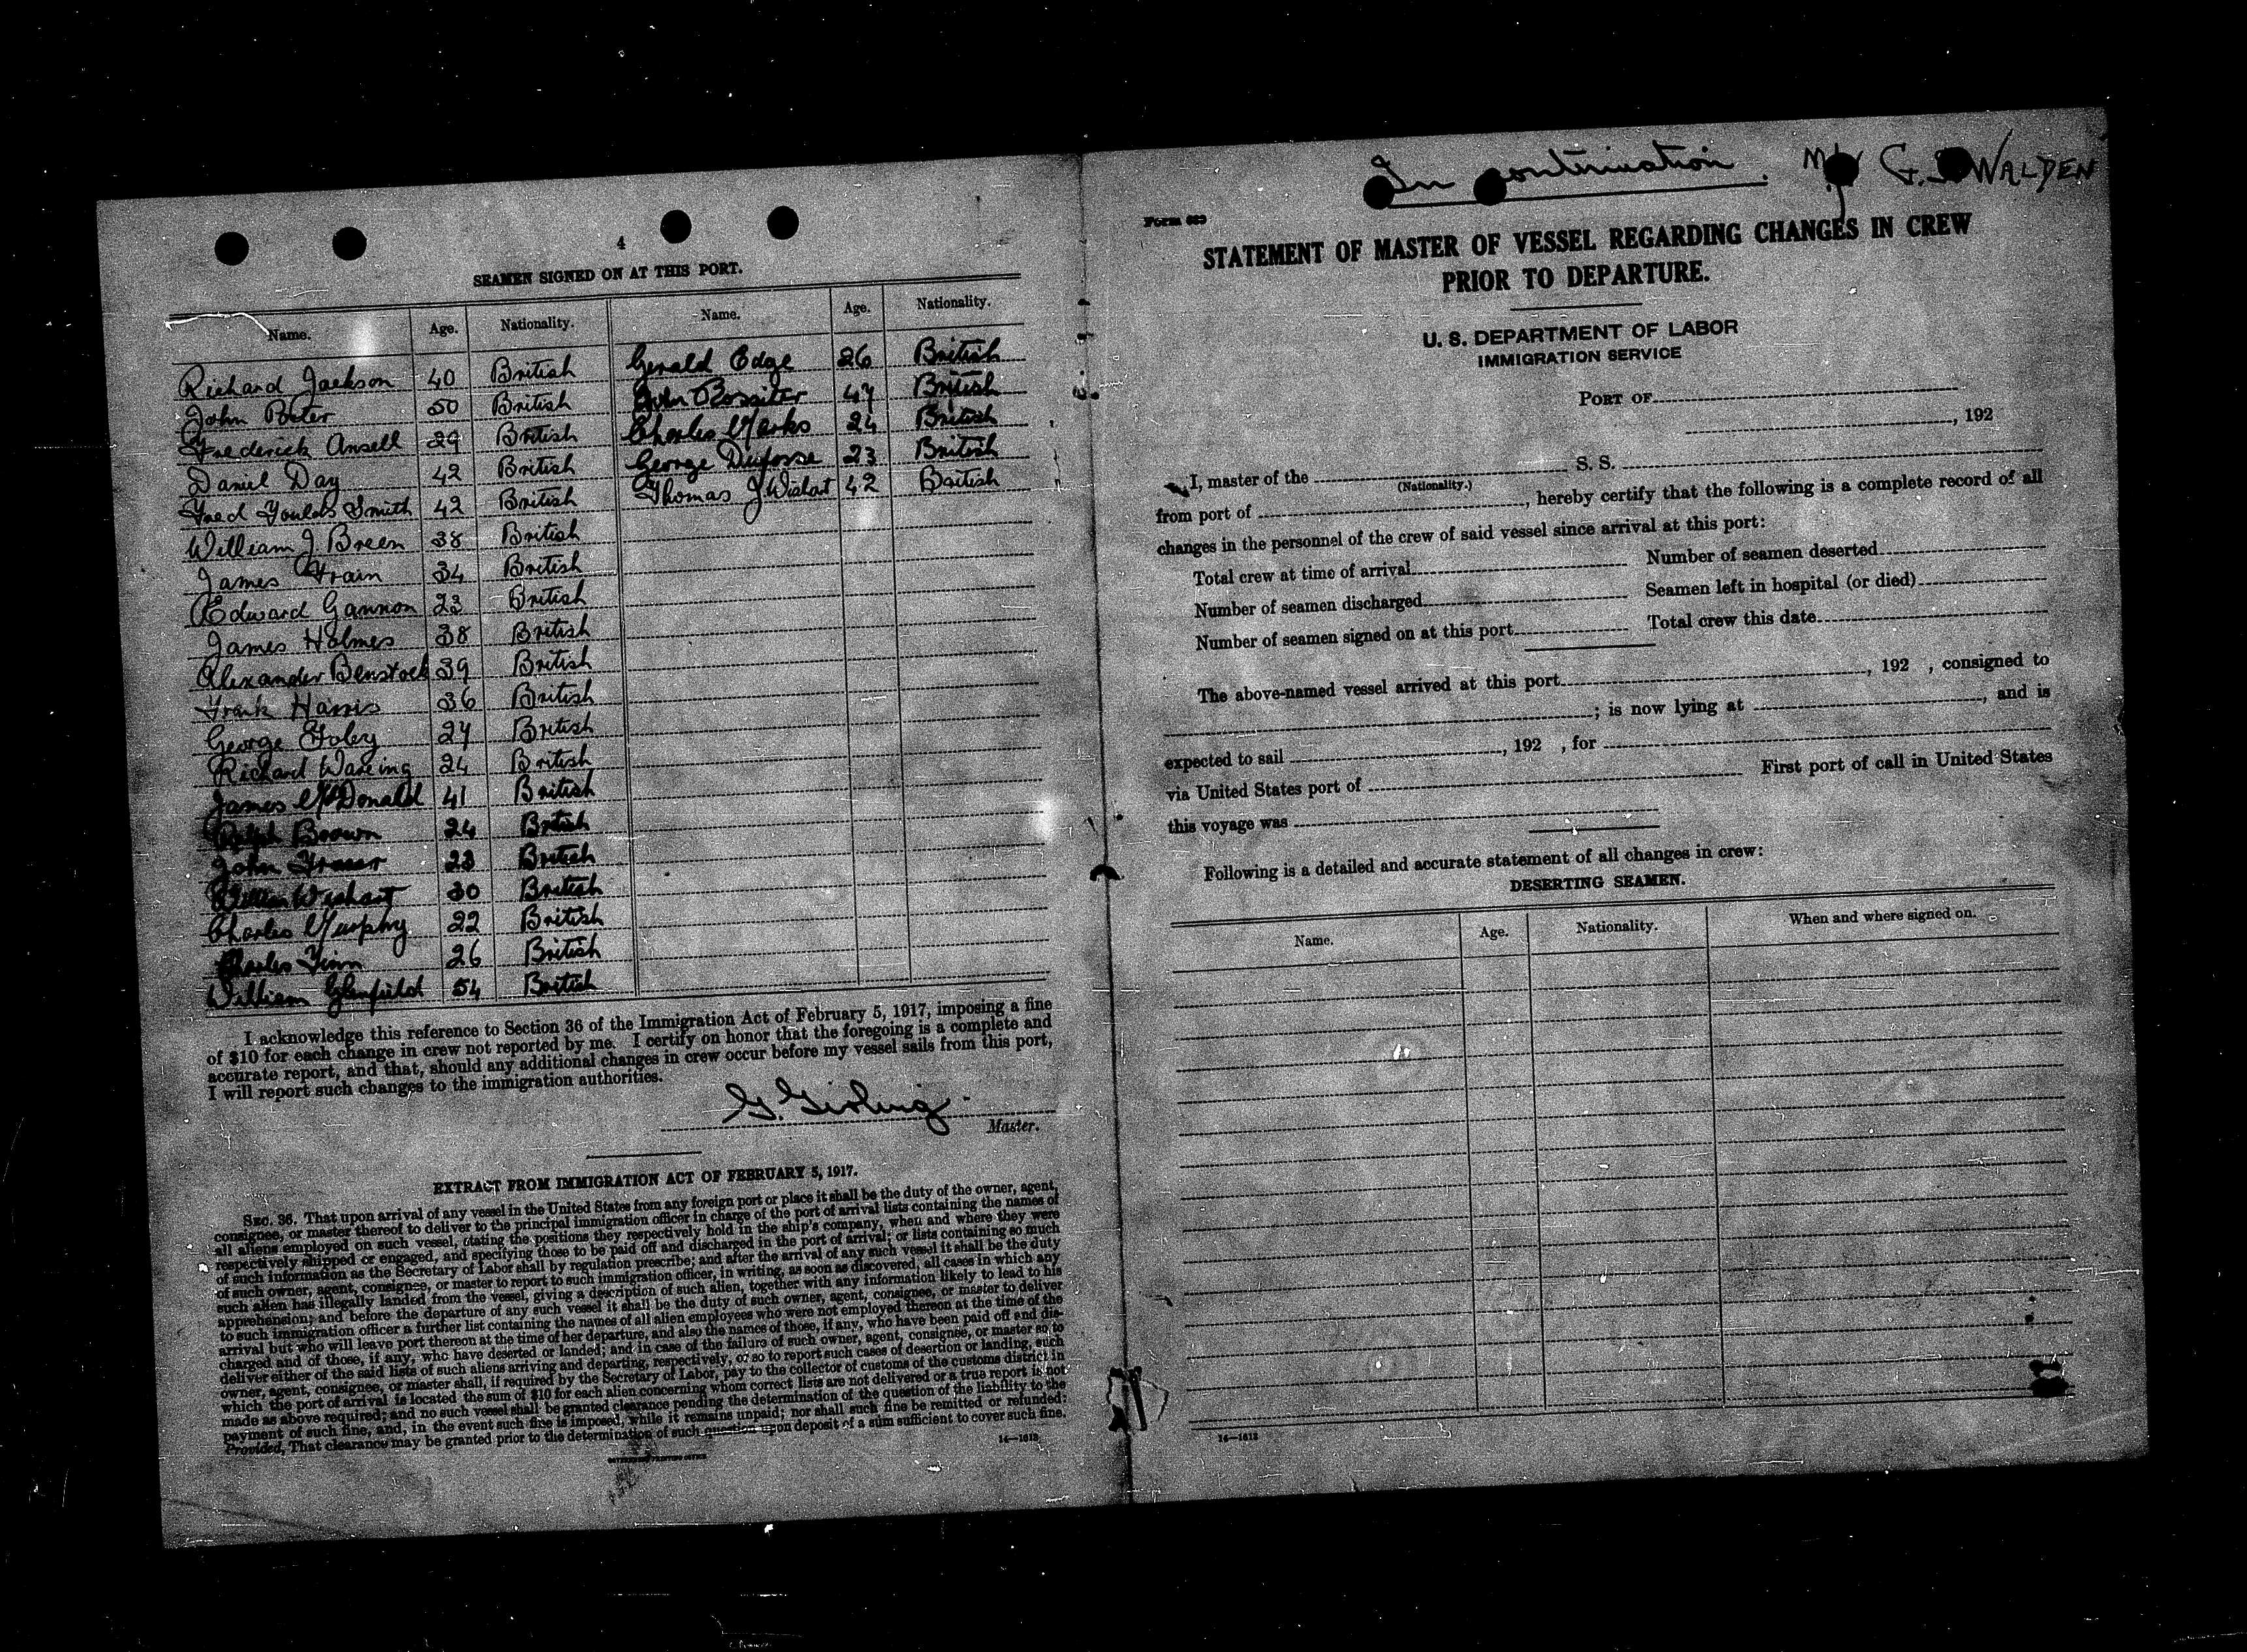 4
SEAMEN SIGNED ON AT THIS PORT.
Name. Age. Nationality. Name. Age. Nationality.
Richard Jackson 40 British Gerald Edge 26 British
John Porter 50 British John Rossiter 47 British
Frederick Ansell 29 British Charles Marks 24 British
Daniel Day 42 British George 23 British
Fred Smith 42 British Thomas J Wishart 42 British
William J Breen 38 British
James Train 34 British
Edward Gannon 23 British
James Holmes 38 British
Alexander Benstock 39 British
Frank Harris 36 British
George Foley 24 British
Richard Wareing 24 British
James McDonald 41 British
Ralph Brown 24 British
John Fraser 23 British
William Wishart 30 British
Charles Murphy 22 British
Charles Finn 26 British
William Glenfield 54 British
I acknowledge this reference to Section 36 of the Immigration Act of February 5, 1917, imposing a fine
of $10 for each change in crew not reported by me. I certify on honor that the foregoing is a complete and
accurate report, and that, should any additional changes in crew occur before my vessel sails from this port,
I will report such changes to the immigration authorities.
G. Girling
Master.
EXTRACT FROM IMMIGRATION ACT OF FEBRUARY 5, 1917.
SEC. 36. That upon arrival of any vessel in the United States from any foreign port or place it shall be the duty of the owner, agent,
consignee, or master thereof to deliver to the principal immigration officer in charge of the port of arrival lists containing the names of
all aliens employed on such vessel, stating the positions they respectively hold in the ship's company, when and where they were
respectively shipped or engaged, and specifying those to be paid off and discharged in the port of arrival; or lists containing so much
of such information as the Secretary of Labor shall by regulation prescribe; and after the arrival of any such vessel it shall be the duty
of such owner, agent, consignee, or master to report to such immigration officer, in writing, as soon as discovered, all cases in which any
such alien has illegally landed from the vessel, giving a description of such alien, together with any information likely to lead to his
apprehension; and before the departure of any such vessel it shall be the duty of such owner, agent, consignee, or master to deliver
to such immigration officer a further list containing the names of all alien employees who were not employed thereon at the time of the
arrival but who will leave port thereon at the time of her departure, and also the names of those, if any, who have been paid off and dis-
charged and of those, if any, who have deserted or landed; and in case of the failure of such owner, agent, consignee, or master so to
deliver either of the said lists of such aliens arriving and departing, respectively, or so to report such cases of desertion or landing, such
owner, agent, consignee, or master shall, if required by the Secretary of Labor, pay to the collector of customs of the customs district in
which the port of arrival is located the sum of $10 for each alien concerning whom correct lists are not delivered or a true report is not
made as above required; and no such vessel shall be granted clearance pending the determination of the question of the liability to the
payment of such fine, and, in the event such fine is imposed, while it remains unpaid; nor shall such fine be remitted or refunded:
Provided, That clearance may be granted prior to the determination of such question upon deposit of a sum sufficient to cover such fine.
GOVERNMENT PRINTING OFFICE 14—1613
In continuation. G. WALDEN
Form 689
STATEMENT OF MASTER OF VESSEL REGARDING CHANGES IN CREW
PRIOR TO DEPARTURE.
U. S. DEPARTMENT OF LABOR
IMMIGRATION SERVICE
PORT OF
, 192
I, master of the S. S.
(Nationality.)
from port of , hereby certify that the following is a complete record of all
changes in the personnel of the crew of said vessel since arrival at this port:
Total crew at time of arrival Number of seamen deserted
Number of seamen discharged Seamen left in hospital (or died)
Number of seamen signed on at this port Total crew this date
The above-named vessel arrived at this port , 192 , consigned to
; is now lying at , and is
expected to sail , 192 , for
via United States port of First port of call in United States
this voyage was
Following is a detailed and accurate statement of all changes in crew:
DESERTING SEAMEN.
Name. Age. Nationality. When and where signed on.
14—1613